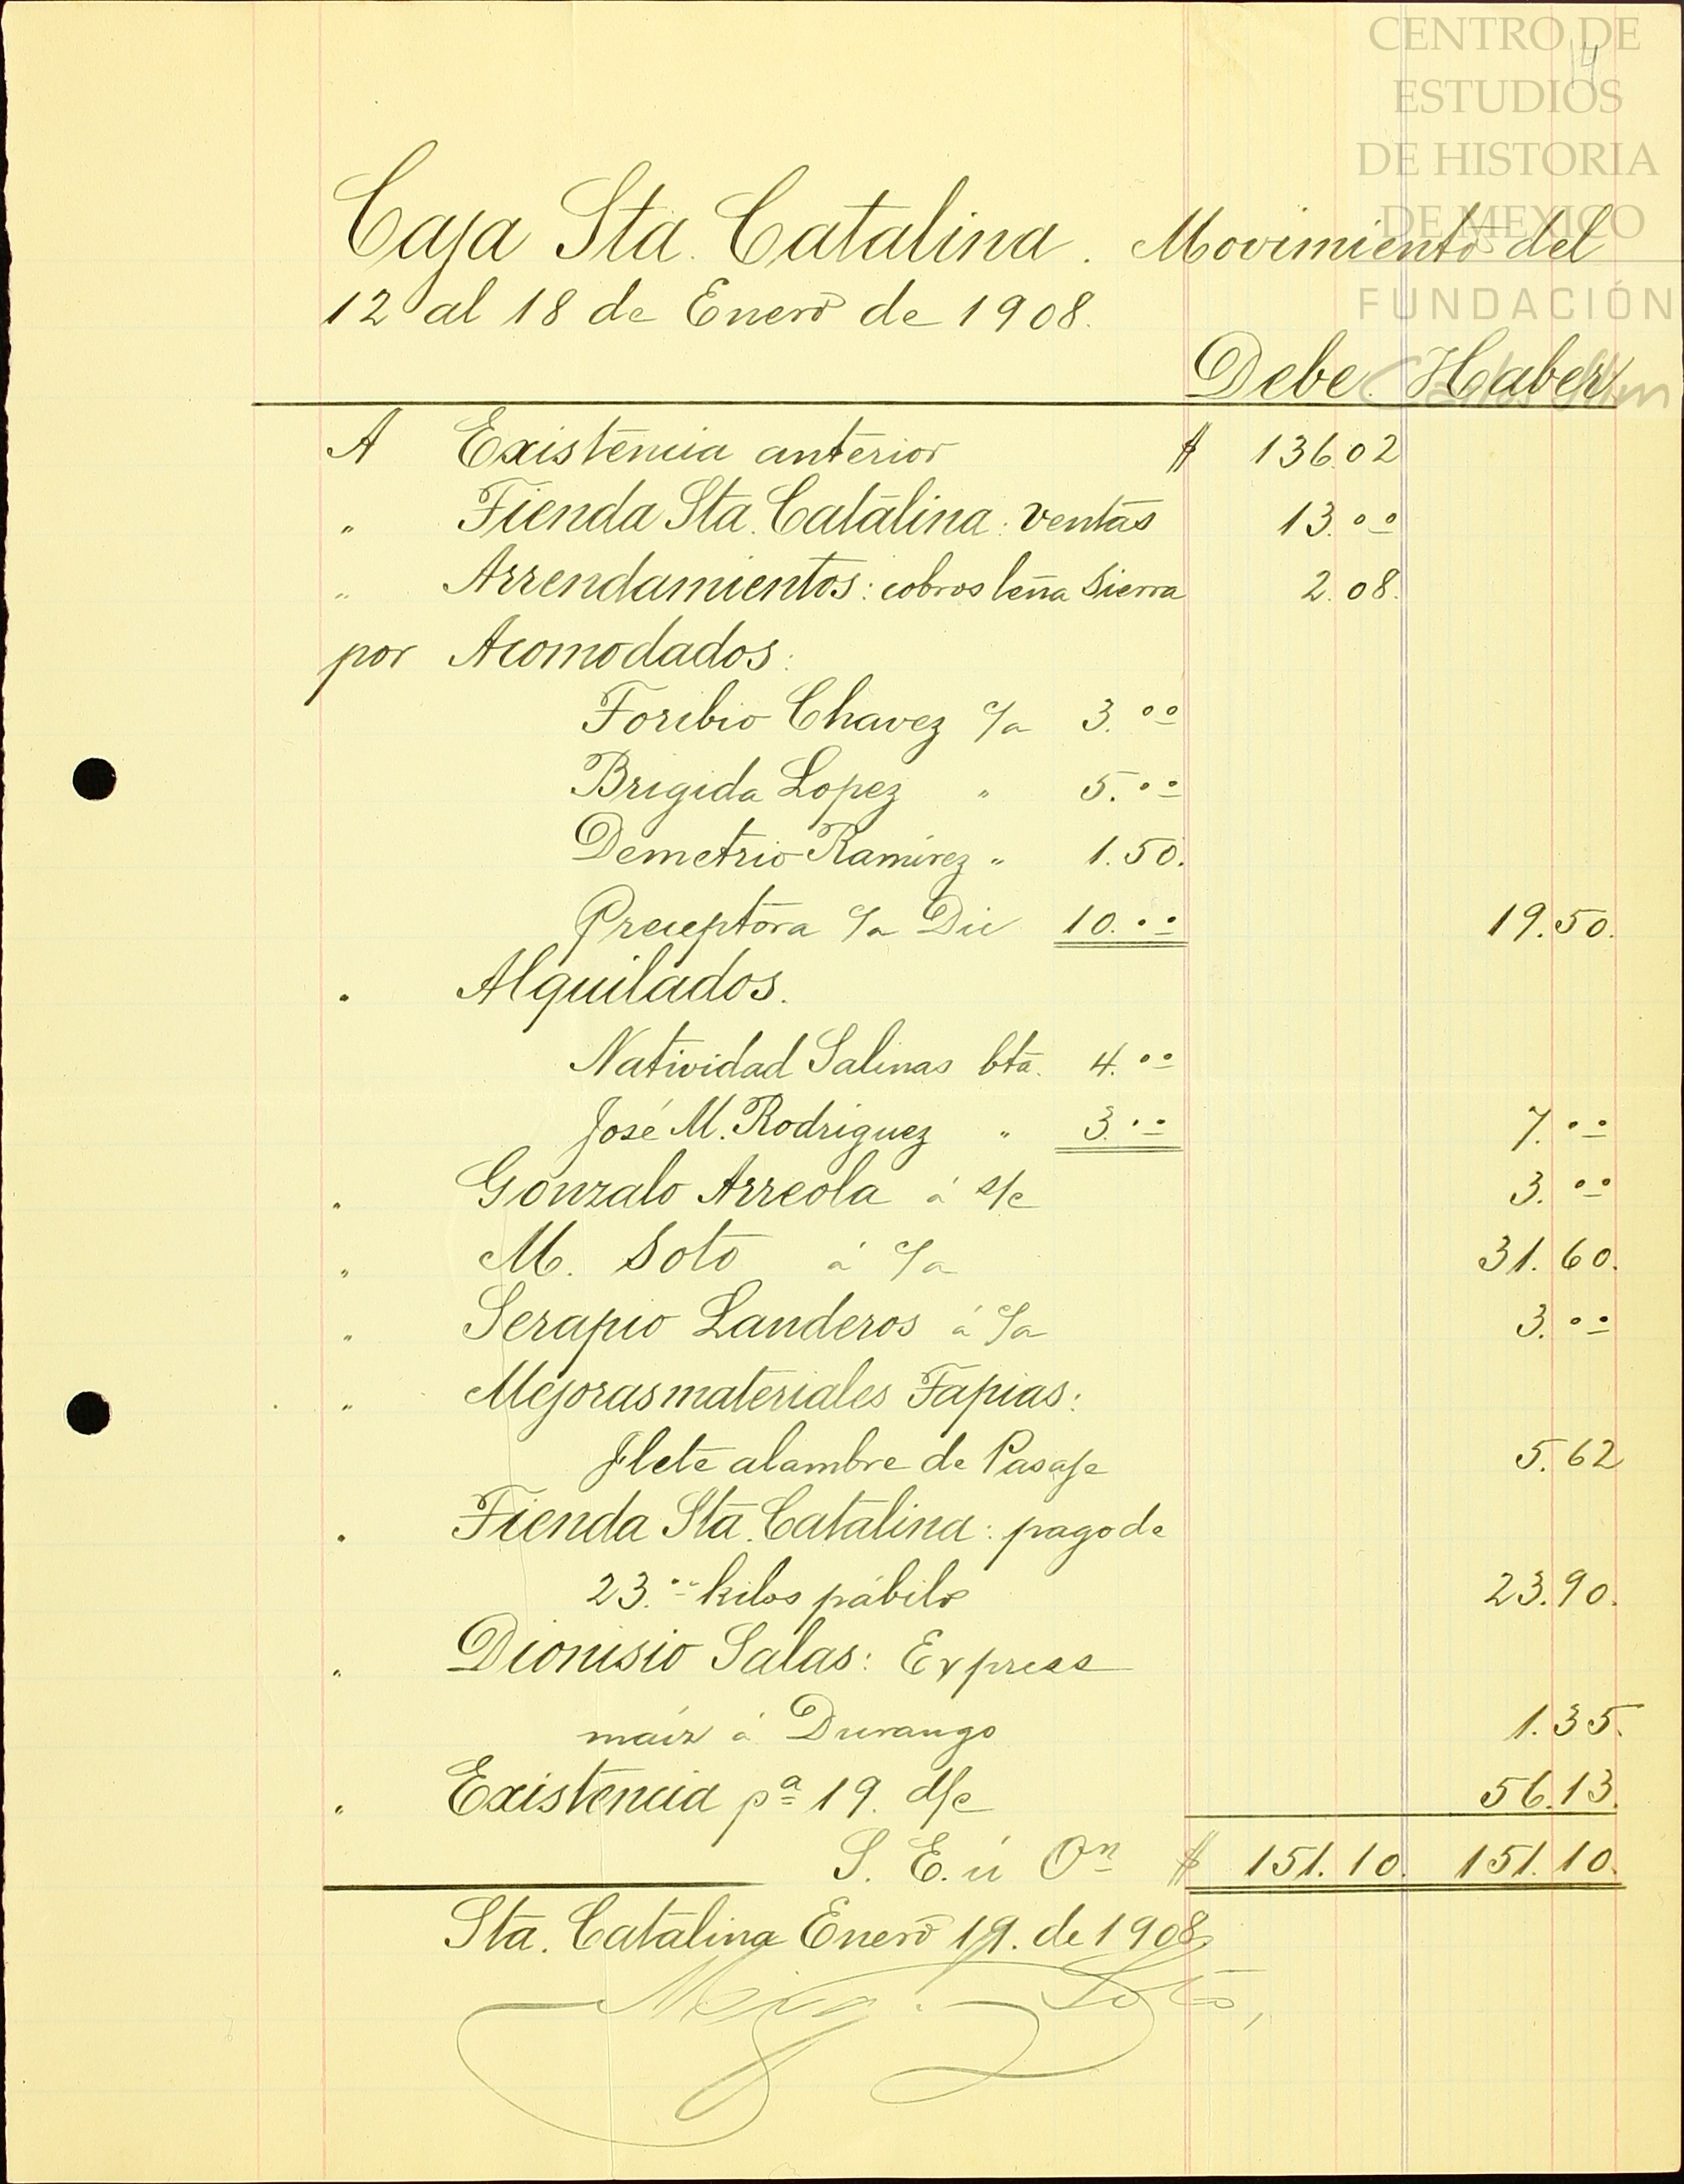 CENTRO DE
ESTUDIOS
DE HISTORIA
DE MEXICO
FUNDACIÓN
Carlos Slim
4
Caja Sta. Catalina. Movimiento del
12 al 18 de Enero de 1908.
Debe Haber
A Existencia anterior $ 136.02
" Tienda Sta. Catalina: ventas 13.00
" Arrendamientos: cobros leña Sierra 2.08.
por Acomodados:
Toribio Chavez c/a 3.00
Brigida Lopez " 5.00
Demetrio Ramirez " 1.50.
Preceptora c/a Dic 10.00 19.50.
" Alquilados.
Natividad Salinas bta. 4.00
José M. Rodriguez " 3.00 7.00
" Gonzalo Arreola á s/c 3.00
" M. Soto á c/a 31.60.
" Serapio Landeros á c/a 3.00
" Mejoras materiales Tapias:
Flete alambre de Pasaje 5.62
" Tienda Sta. Catalina: pago de
23.00 kilos pábilo 23.90.
" Dionisio Salas: Express
maíz á Durango 1.35.
" Existencia pa 19. d/c 56.13.
S. E. ú On $ 151.10. 151.10.
Sta. Catalina Enero 19. de 1908
Soto